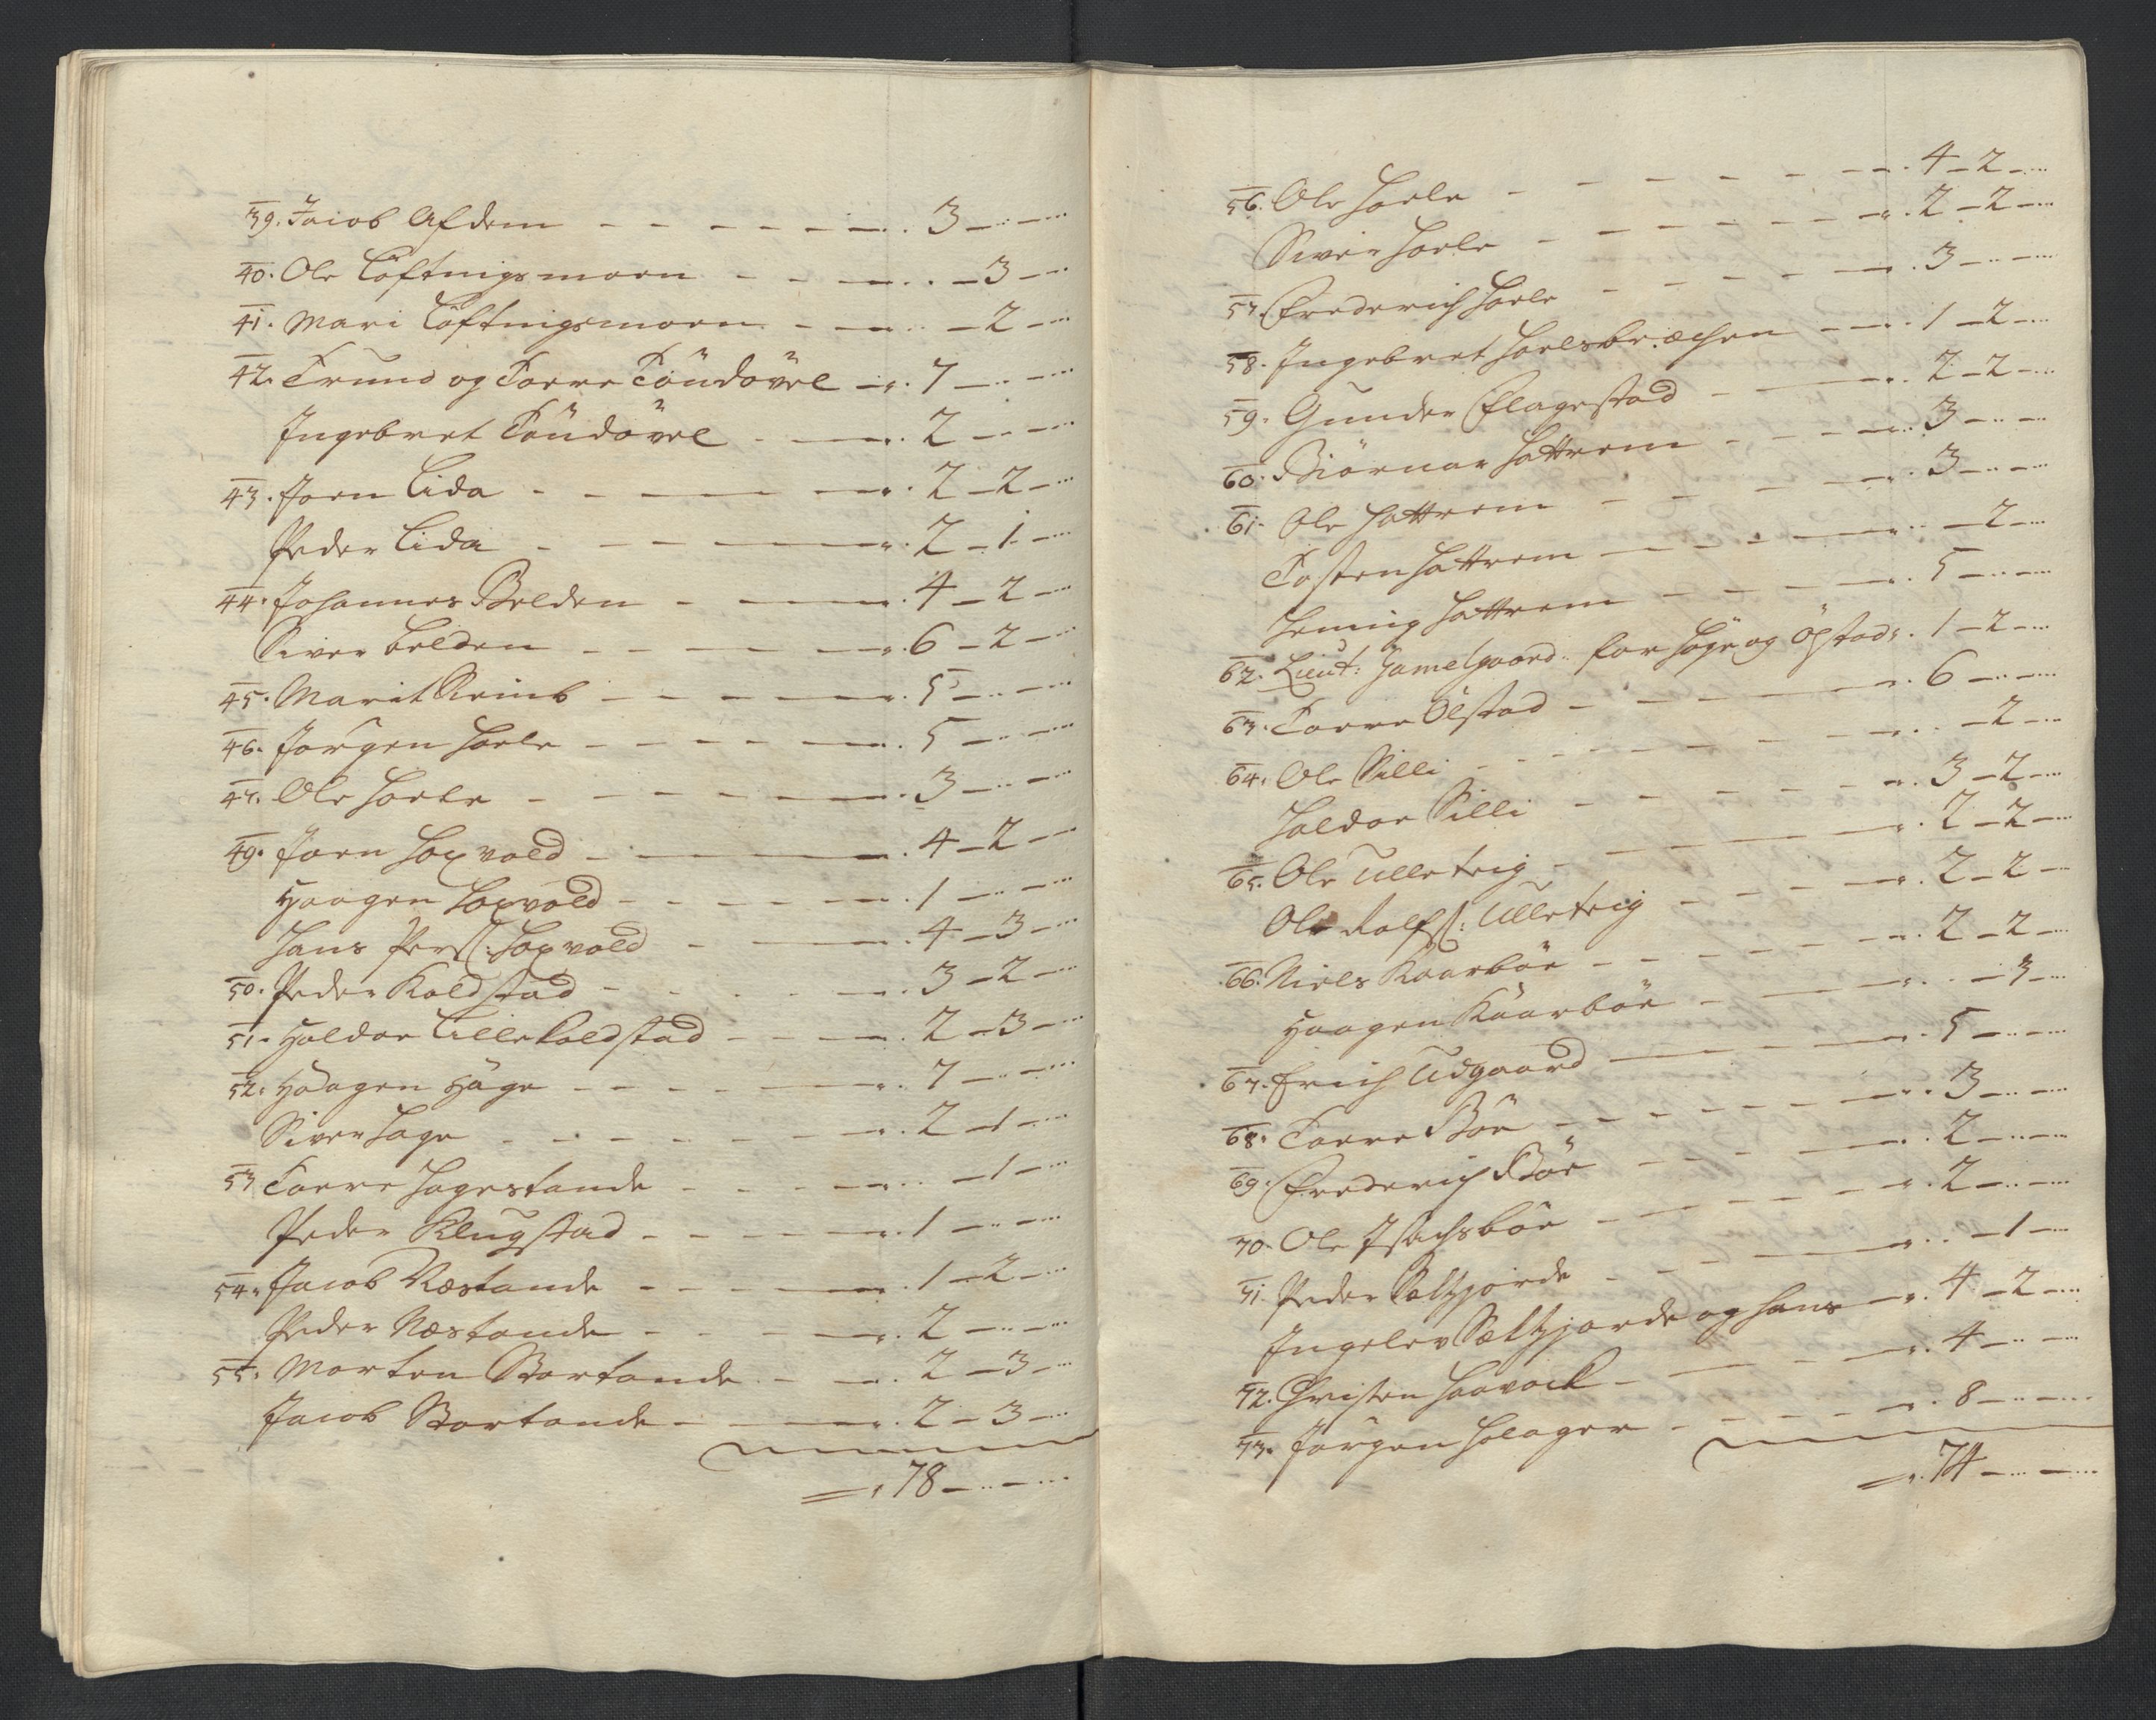 39. Jacob Afdem - - - - - - . 3 - .. - ...
40. Ole Löftnigsmoen - - - . . - 3 - ...
41. Mari Löftnigsmoen - - - .. - 2 - ...
42. Trund og Torre Töndövel - . 7 - .. - ...
Ingebret Töndövel - - . 2 - .. - ...
43. Joen Lida - - - - - . 2 - 2 - ...
Peder Lida - - - - - . 2 - 1 - ...
44. Johannes Belden - - . 4 - 2 - ...
Siver belden - - - - - . 6 - 2 - ...
45. Marit Reinb - - - - - . 5 - .. - ...
46. Jörgen Hoele - - - - - . 5 - .. - ...
47. Ole Hoele - - - - - . 3 - .. - ...
49. Joen Hoxvold - - - . 4 - 2 - ...
Haagen Hoxvold - - - - - . 1 - .. - ...
Hans Perss: Hoxvold - - . 4 - 3 - ...
50. Peder Koldstad - - - - . 3 - 2 - ...
51. Haldor Lillekoldstad - - - . 2 - 3 - ...
52. Haagen Hage - - - - - . 7 - .. - ...
Siver Hage - - - - - . 2 - 1 - ...
53 Torre Hagestande - - - - .. - 1 - ...
Peder Klugstad - - - - - . 1 - .. - ...
54. Jacob Næstande - - - - . 1 - 2 - ...
Peder Næstande - - - - . 2 - .. - ...
55. Morten Bortande - - . 2 - 3 - ...
Jacob Bortande - - - . 2 - 3 - ...
78 - .. - ...
56. Ole Hoele - - - - - - . 4 - 2 - ...
Siver Hoele - - - - - - . 2 - 2 - ...
57. Frederich Hoele - - - - - . 3 - .. - ...
58. Ingebret Hoelsbræchen - - . 1 - 2 - ...
59. Gunder Flagestad - - . 2 - 2 - ...
60. Biörnar Hattrem - - - - . 3 - .. - ...
61. Ole Hattrem - - - - - . 3 - .. - ...
Tosten Hattrem - - - - .. - 2 - ...
Heming Hattrem - - - - . 5 - .. - ...
62. Lieut: Gamelgaard: for Høye og Opstad . 1 - 2 - ...
63. Torre Ölstad - - - - - . 6 - .. - ...
64. Ole Silli - - - - - - . . - 2 - ...
Haldor Silli - - - - - . 3 - 2 - ...
65. Ole Ulleteig - - - - . 2 - 2 - ...
Ole Rolfss: Ulleteig - - - - . 2 - 2 - ...
66. Niels Kaarböe - - - - - . 2 - 2 - ...
Haagen Kaarböe - - - . . - 3 - ...
67. Erich Udgaard - - - . 5 - .. - ...
68. Torre Böe - - - - - . 3 - .. - ...
69. Frederich Böe - - - - . 2 - .. - ...
70. Ole Isachsböe - - - - - . 2 - .. - ...
71. Peder Saltzjorde - - - - . . - 1 - ...
Ingelev Saltzjorde og Hans - . 4 - 2 - ...
72. Christen Haavack - - - - . 4 - .. - ...
73. Jörgen Holager - - - - . 8 - .. - ...
74 - .. - ...